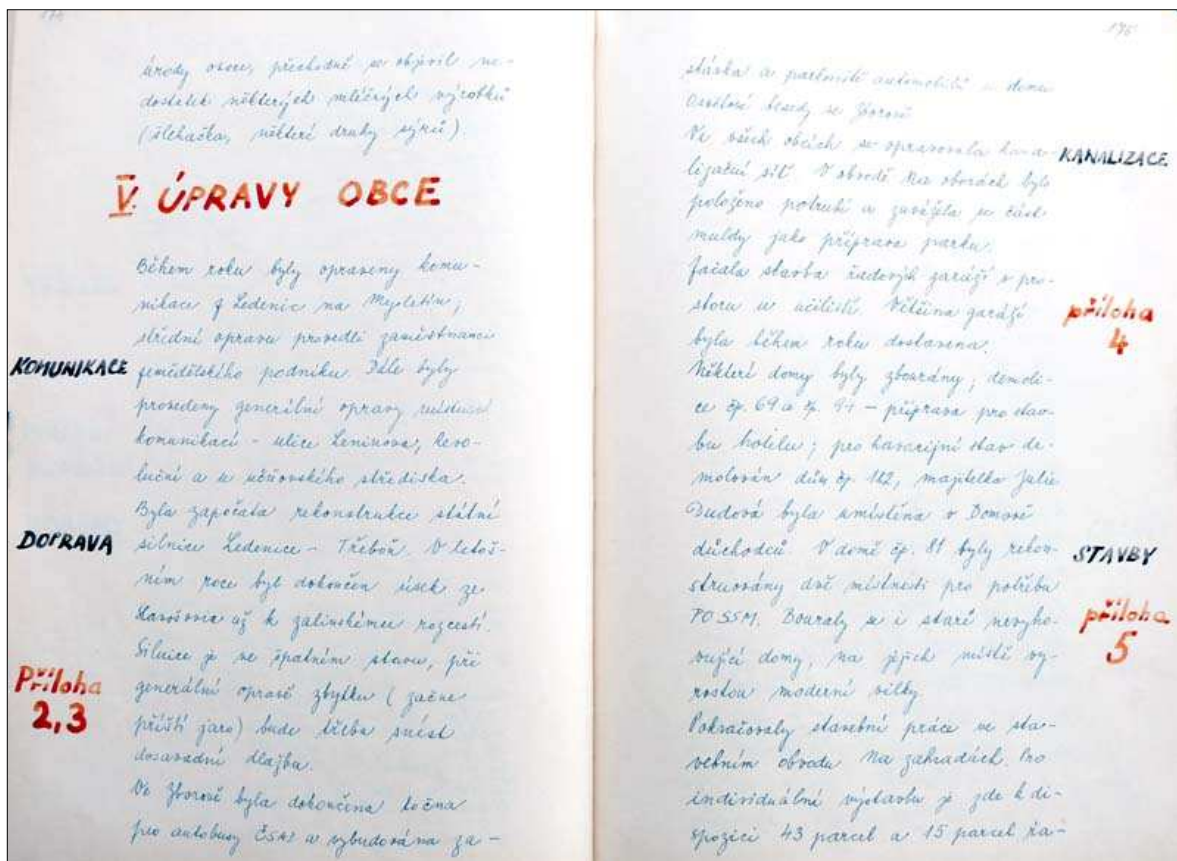 174
úrody ovoce, přechodně se objevil ne-
dostatek některých mléčných výrobků
(šlehačka, některé druhy sýrů).
V. ÚPRAVY OBCE
Během roku byly opraveny komu-
nikace z Ledenic na Mysletín;
střední opravu provedli zaměstnanci
KOMUNIKACE
zemědělského podniku. Dále byly
provedeny generální opravy
komunikací - ulice Leninova, Revo-
luční a u učňovského střediska.
Byla započata rekonstrukce státní
DOPRAVA
silnice Ledenice - Třeboň. V letoš-
ním roce byl dokončen úsek ze
až k zalinskému rozcestí.
Silnice je ve špatném stavu, při
Příloha
2,3
generální opravě zbytku (začne
příští jaro) bude třeba snést
dosavadní dlažbu.
Ve Zborově byla dokončena točna
pro autobusy ČSAD a vybudována za-
175
stávka a parkoviště automobilů u domu
Osvětové besedy ve Zborově
Ve všech obcích se opravovala kana-
KANALIZACE
lizační síť. V obvodě Na oborách bylo
položeno potrubí a zavážela se část
muldy jako příprava parku.
Začala stavba řadových garáží v pro-
storu u učiliště. Většina garáží
příloha
4
byla během roku dostavena.
Některé domy byly zbourány; demoli-
ce čp. 69 a čp. 94 - příprava pro stav-
bu hotelu; pro havarijní stav de-
molován dům čp. 182, majitelka Julie
Dudová byla umístěna v Domově
důchodců. V domě čp. 81 byly rekon-
STAVBY
struovány dvě místnosti pro potřebu
PO SSM. Bouraly se i staré nevyho-
příloha
5
vující domy, na jejich místě vy-
rostou moderní vilky.
Pokračovaly stavební práce ve sta-
vebním obvodu Na zahradách. Pro
individuální výstavbu je zde k di-
spozici 43 parcel a 15 parcel řa-